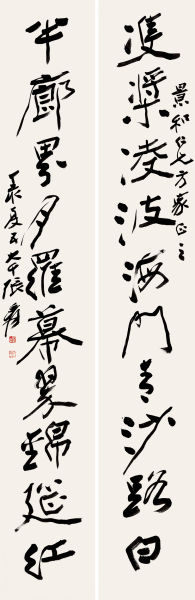 隻槳凌波海門青沙路白
景和仁兄方家正之
半廊界月羅幕翠錦筵紅
夏五大千張爰